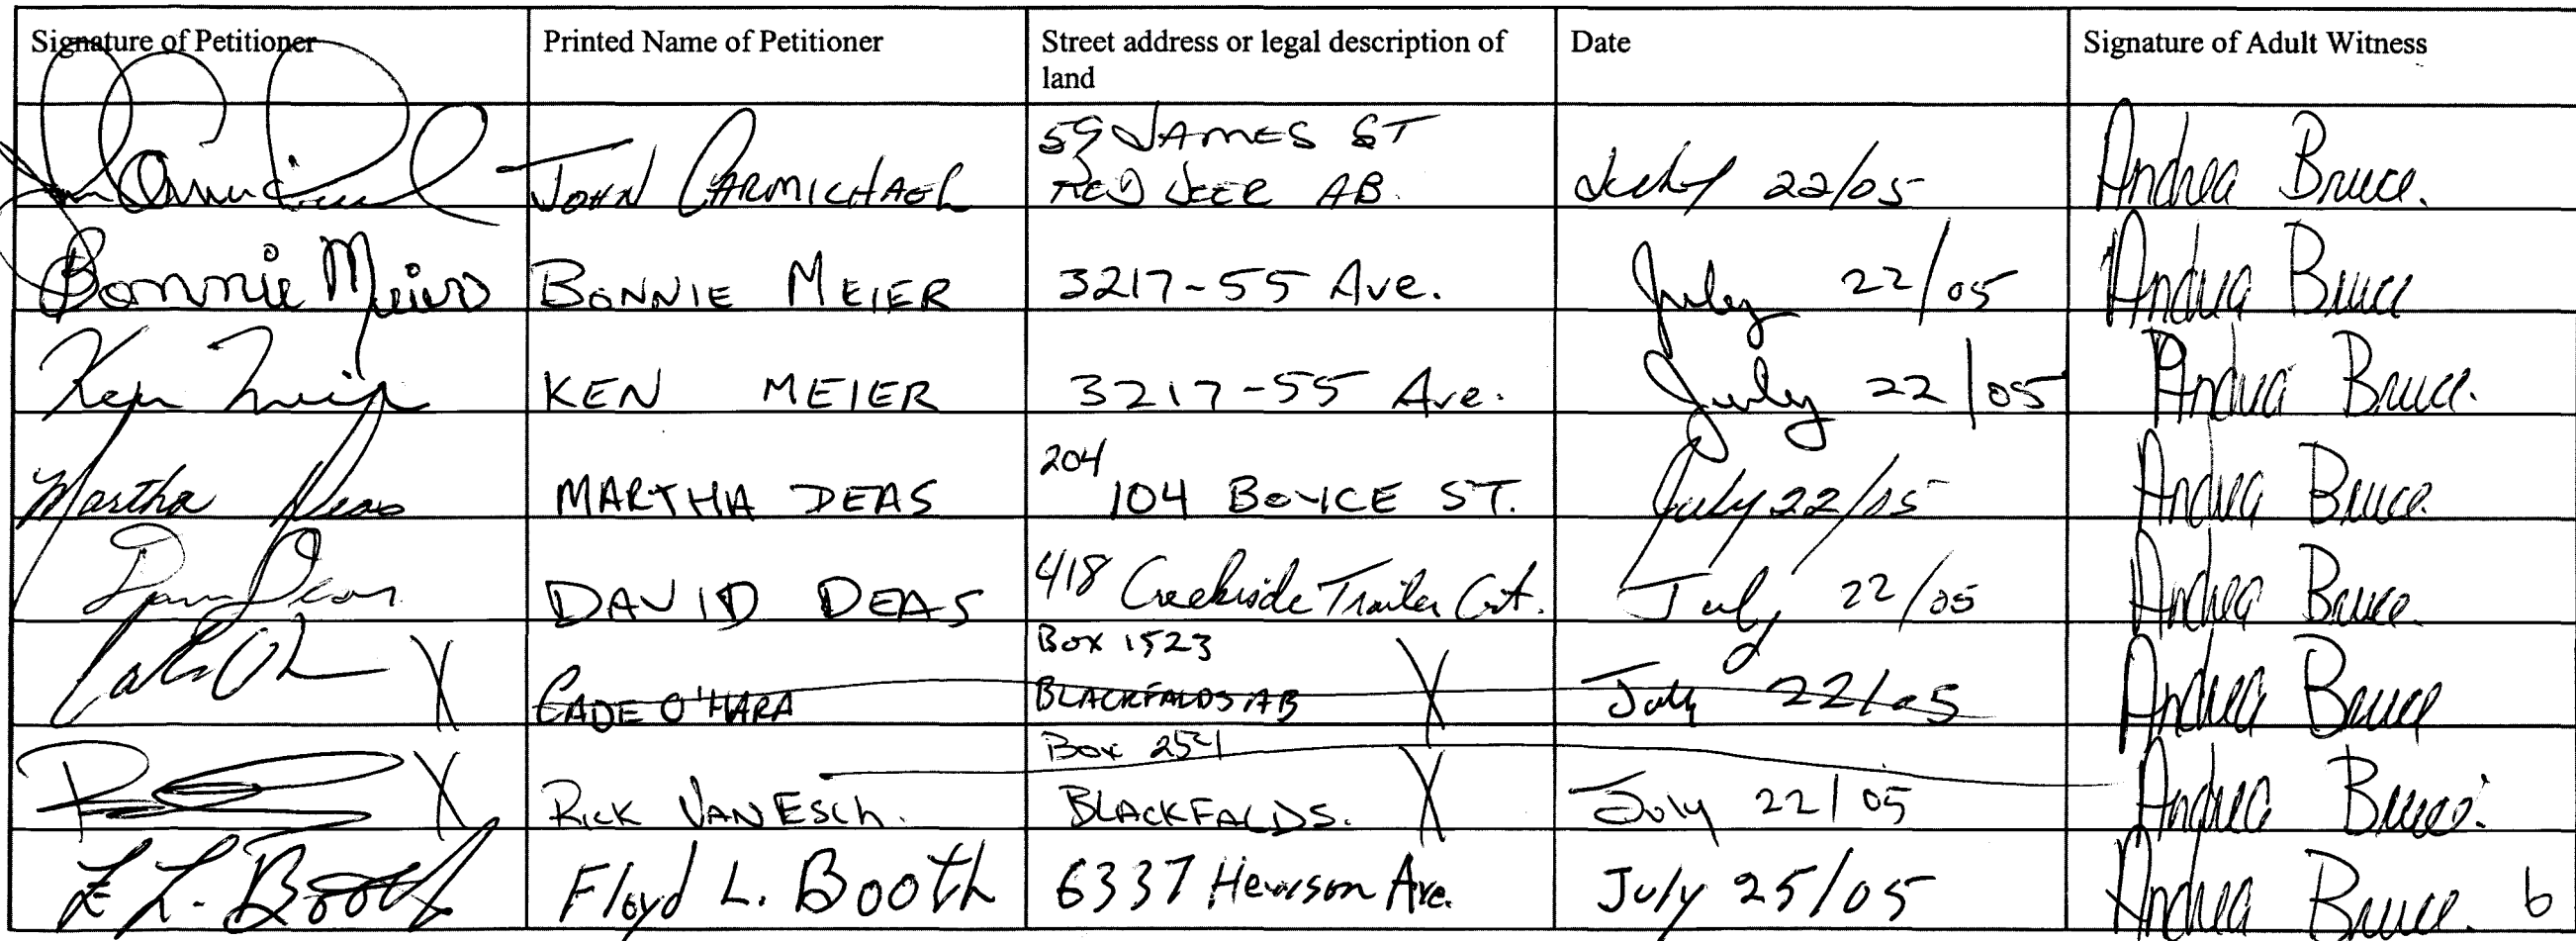 Signature of Petitioner Printed Name of Petitioner Street address or legal description of Date Signature of Adult Witness
land
59 JAMES ST
JOHN CARMICHAEL RED DEER AB. July 22/05 Andrea Bruce.
Bonnie Meier BONNIE MEIER 3217-55 Ave. July 22/05 Andrea Bruce
Ken Meier KEN MEIER 3217-55 Ave. July 22/05 Andrea Bruce.
204
Martha Deas MARTHA DEAS 104 BOYCE ST. July 22/05 Andrea Bruce.
Deas DAVID DEAS 418 Creekside Trailer Crt. July 22/05 Andrea Bruce.
Box 1523
X CADE O'HARA BLACKFALDS AB X July 22/05 Andrea Bruce
Box 2541
X RICK VAN ESCH. BLACKFALDS. X July 22/05 Andrea Bruce.
F L. Booth Floyd L. Booth 6337 Hewson Ave. July 25/05 Andrea Bruce. 6